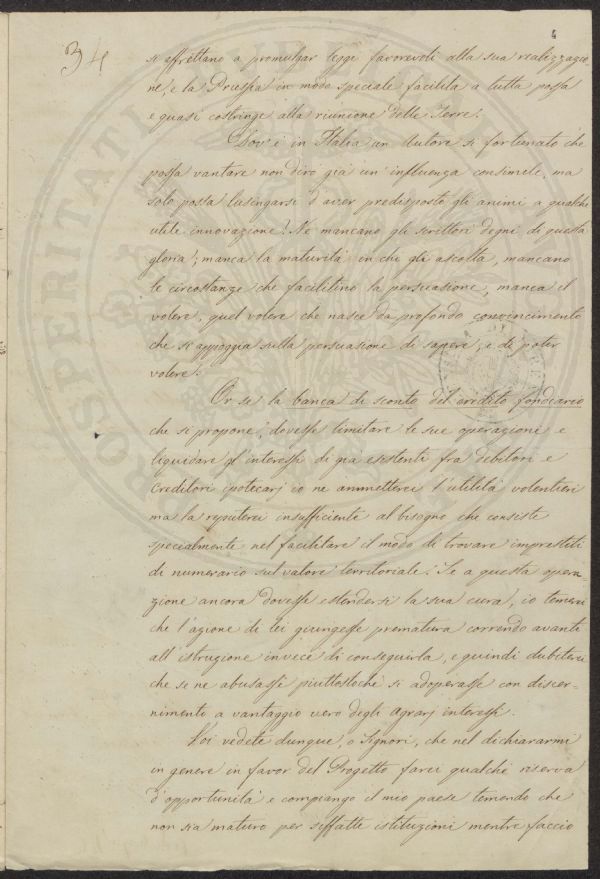 4
34
si affrettano a promulgar leggi favorevoli alla sua realizzazio-
ne, e la Prussia in modo speciale facilita a tutta possa
e quasi costringe alla riunione delle Terre.
Dov'è in Italia un Autore sì fortunato che
possa vantare non dirò già un'influenza consimile, ma
solo possa lusingarsi d'aver predisposto gli animi a qualche
utile innovazione? Nè mancano gli scrittori degni di questa
gloria; manca la maturità in chi gli ascolta, mancano
le circostanze che facilitino la persuasione, manca il
volere, quel volere che nasce da profondo convincimento
che si appoggia sulla persuasione di sapere, e di poter
volere.
Or se la banca di sconto del credito fondiario
che si propone, dovesse limitare le sue operazioni e
liquidare gl'interessi di già esistenti fra debitori e
creditori ipotecarj io ne ammetterei l'utilità volentieri
ma la reputerei insufficiente al bisogno che consiste
specialmente nel facilitare il modo di trovare imprestiti
di numerario sul valore territoriale. Se a questa opera-
zione ancora dovesse estendersi la sua cura, io temerei
che l'azione di lei giungesse prematura correndo avanti
all'istruzione invece di conseguirla, e quindi dubiterei
che se ne abusasse piuttostochè si adoperasse con discer-
nimento a vantaggio vero degli agrarj interessi.
Voi vedete dunque, o Signori, che nel dichiararmi
in genere in favor del Progetto farei qualche riserva
d'opportunità e compiango il mio paese temendo che
non sia maturo per siffatte istituzioni mentre faccio
PROSPERITATI